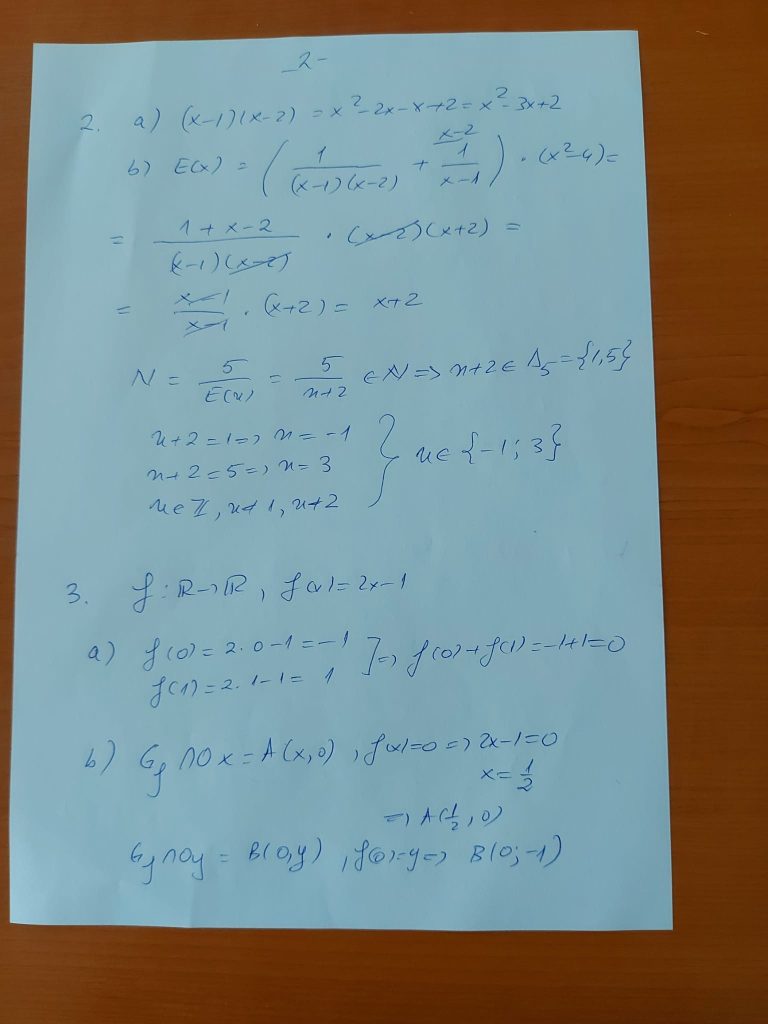 -2-
2. a) (x-1)(x-2) = x²-2x-x+2 = x²-3x+2
x-2
b) E(x) = ( 1/((x-1)(x-2)) + 1/(x-1) ) · (x²-4) =
= (1+x-2)/((x-1)(x-2)) · (x-2)(x+2) =
= (x-1)/(x-1) · (x+2) = x+2
N = 5/E(n) = 5/(n+2) ∈ N => n+2 ∈ Δ₅ = {1,5}
n+2=1 => n=-1
n+2=5 => n=3 } n ∈ {-1; 3}
n∈ℤ, n≠1, n≠2
3. f: ℝ→ℝ, f(x)=2x-1
a) f(0)=2·0-1=-1
f(1)=2·1-1= 1 ] => f(0)+f(1)=-1+1=0
b) Gf ∩ Ox = A(x,0), f(x)=0 => 2x-1=0
x= 1/2
=> A(1/2, 0)
Gf ∩ Oy = B(0,y), f(0)=y => B(0;-1)